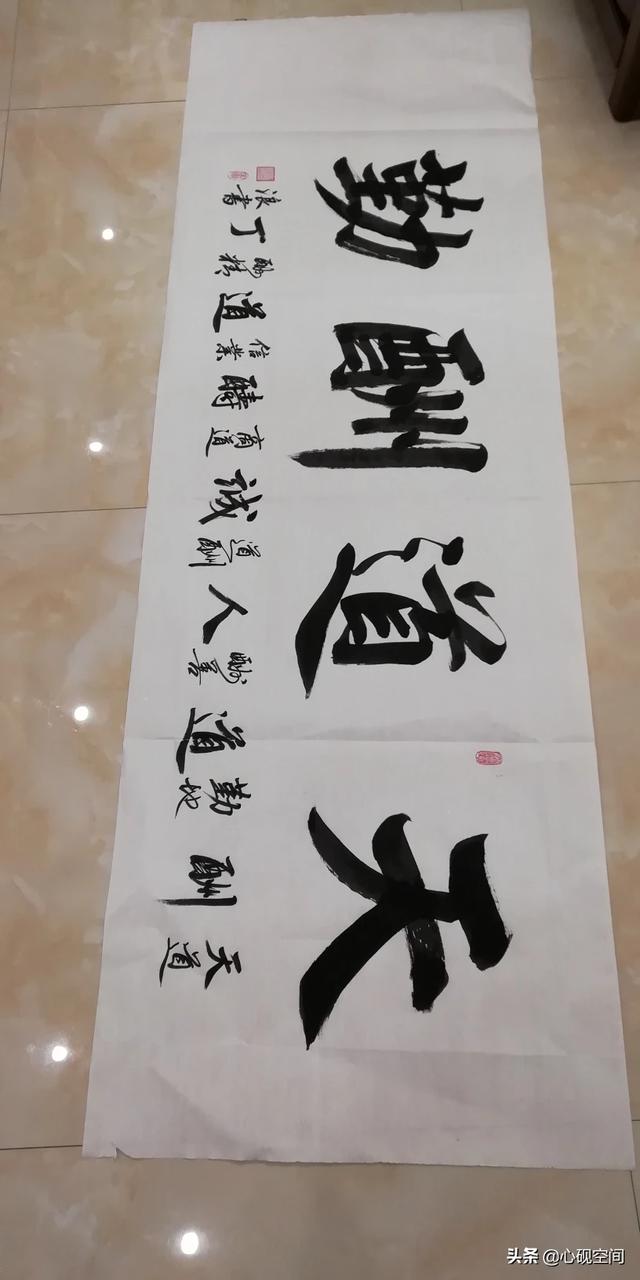 天道酬勤
天道
酬
勤地
道
酬善
人
道酬
誠
商道
醻
信業
道
酬精
丁
浪書
头条 @心砚空间